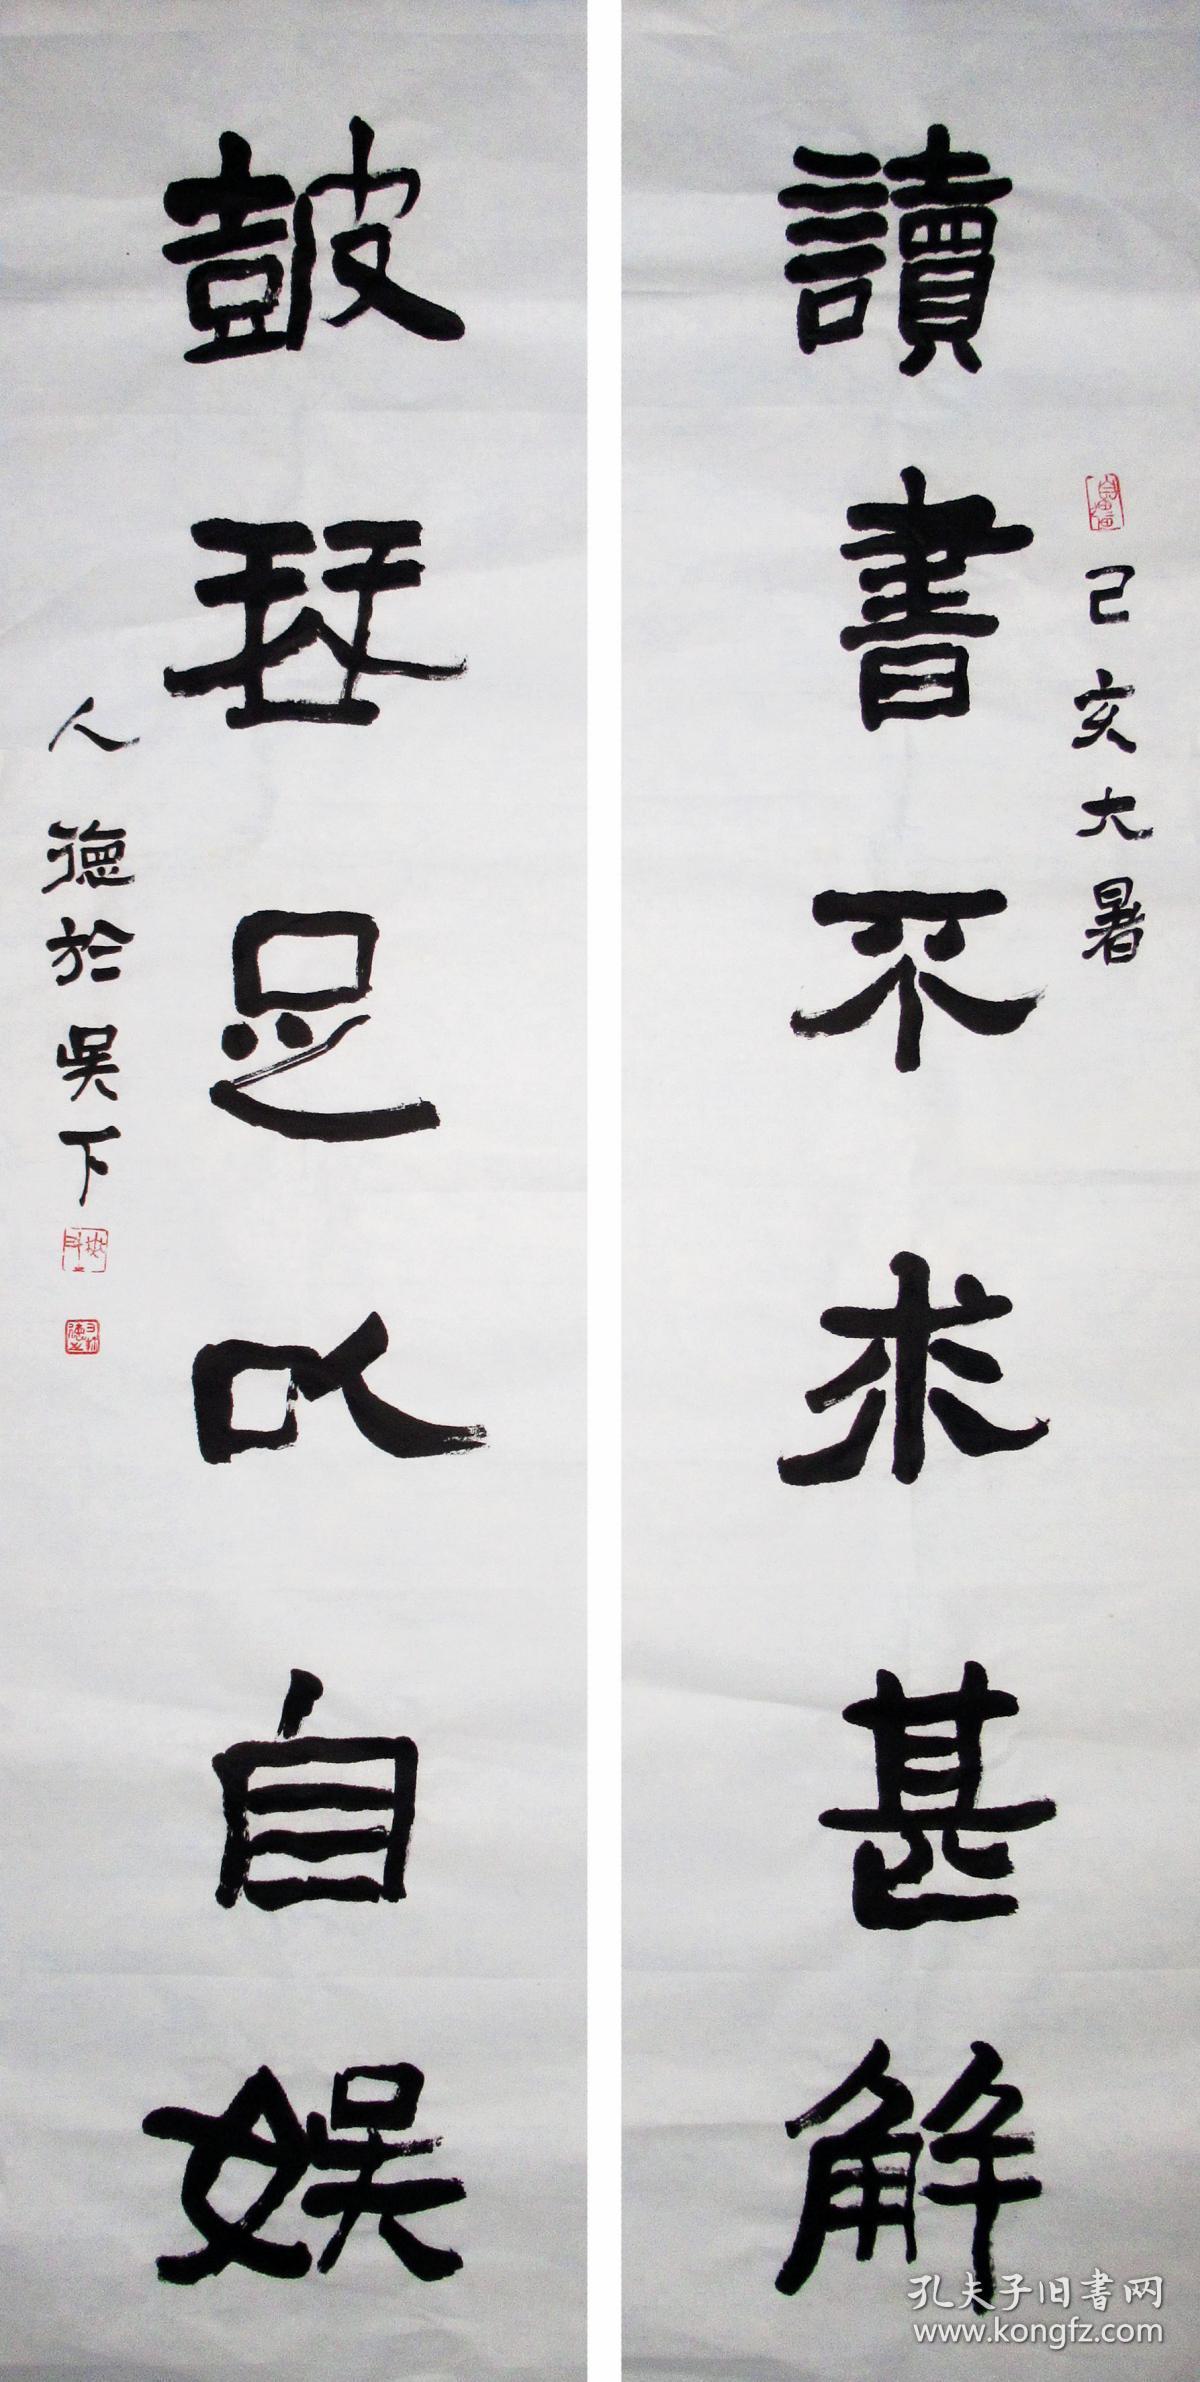 讀書不求甚解
己亥大暑
皷琹足以自娛
人德於吴下
孔夫子旧書网
www.kongfz.com